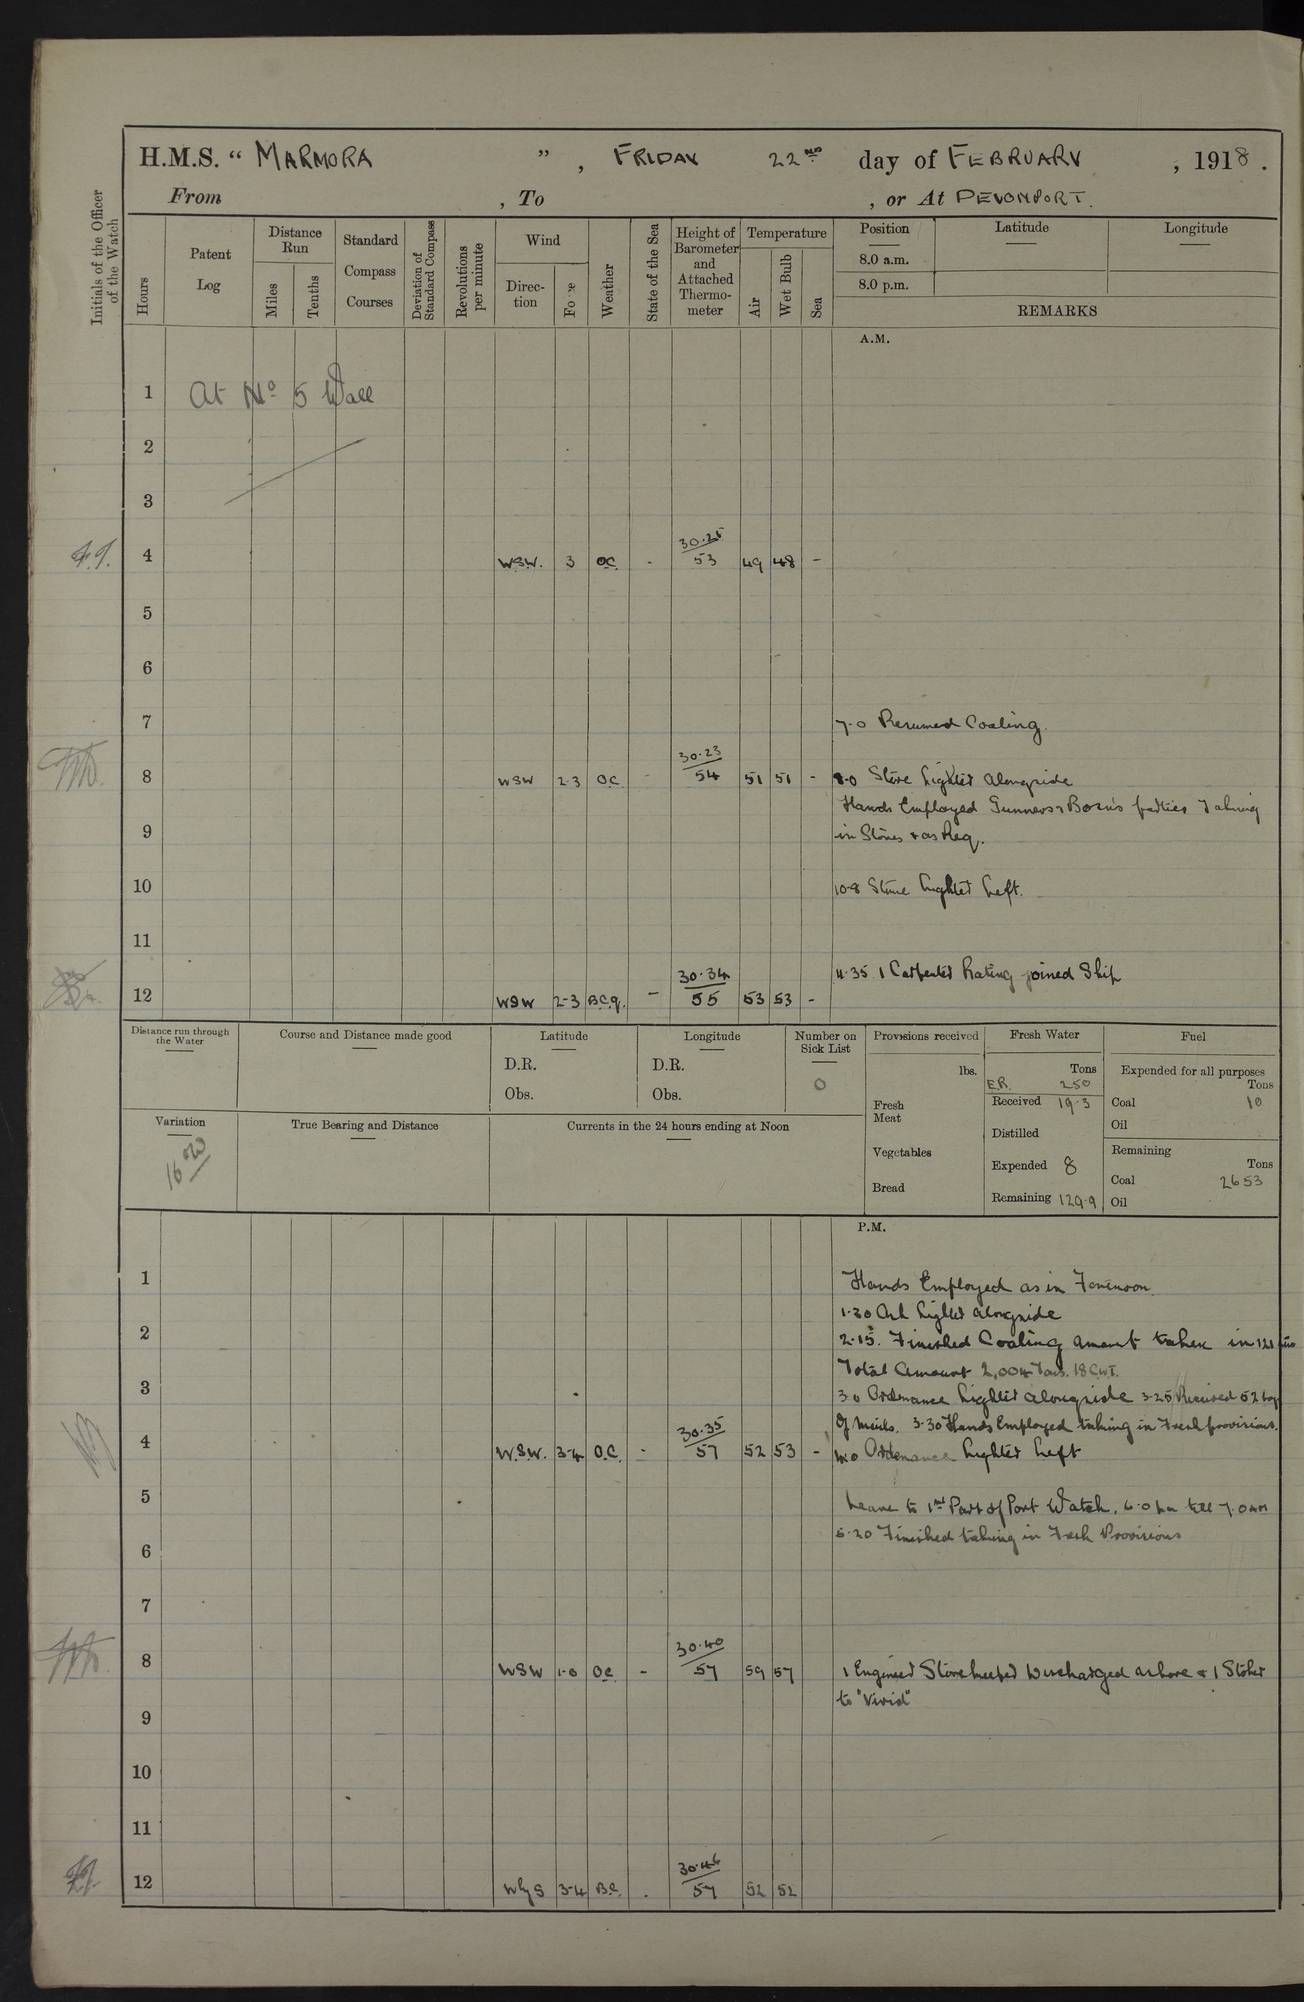 H.M.S. “ MARMORA ” , FRIDAY 22ND day of FEBRUARY , 1918 .
From , To , or At DEVONPORT.
Initials of the Officer of the Watch
Hours
Patent Log
Distance Run
Miles
Tenths
Standard Compass Courses
Deviation of Standard Compass
Revolutions per minute
Wind
Direc-tion
Fo e
Weather
State of the Sea
Height of Barometer and Attached Thermo-meter
Temperature
Air
Wet Bulb
Sea
Position
8.0 a.m.
8.0 p.m.
Latitude
Longitude
REMARKS
A.M.
1 At No 5 Wall
2
3
30.25
4 WSW. 3 OC. - 53 49 48 -
5
6
7 7.0 Resumed Coaling.
30.23
8 WSW 2-3 OC - 54 51 51 - 8.0 Store Lighter alongside
Hands Employed Gunners & Bosn's parties Taking
9 in Stores & as Req.
10 10.8 Store Lighter Left.
11
30.34 11.35 1 Carpenter Rating joined Ship
12 WSW 2-3 B.C.q. - 55 53 53 -
Distance run through the Water
Course and Distance made good
Latitude
D.R.
Obs.
Longitude
D.R.
Obs.
Number on Sick List
0
Variation
16
True Bearing and Distance
Currents in the 24 hours ending at Noon
Provisions received
lbs.
Fresh Meat
Vegetables
Bread
Fresh Water
Tons
E.R. 250
Received 19.3
Distilled
Expended 8
Remaining 129.9
Fuel
Expended for all purposes
Tons
Coal 10
Oil
Remaining
Tons
Coal 2653
Oil
P.M.
1 Hands Employed as in Forenoon.
1.30 Lighter alongside
2 2.15. Finished Coaling amount taken in 121
Total Amount 2,004 Tons. 18 Cwt.
3 3.0 Ordnance Lighter alongside 3.25 Received 52 bags
of Mails. 3.30 Hands Employed taking in Fresh provisions.
30.35
4 W.S.W. 3-4 O.C. - 57 52 53 - Ordnance Lighter Left
5 Leave to 1st Part of Port Watch. 6.0 pm till 7.0 am
5.20 Finished taking in Fresh Provisions
6
7
30.40
8 WSW 1-0 OC - 57 59 57 1 Engineer Storekeeper Discharged ashore & 1 Stoker
to "Vivid"
9
10
11
30.46
12 WbyS 3-4 B.C. . 57 52 52